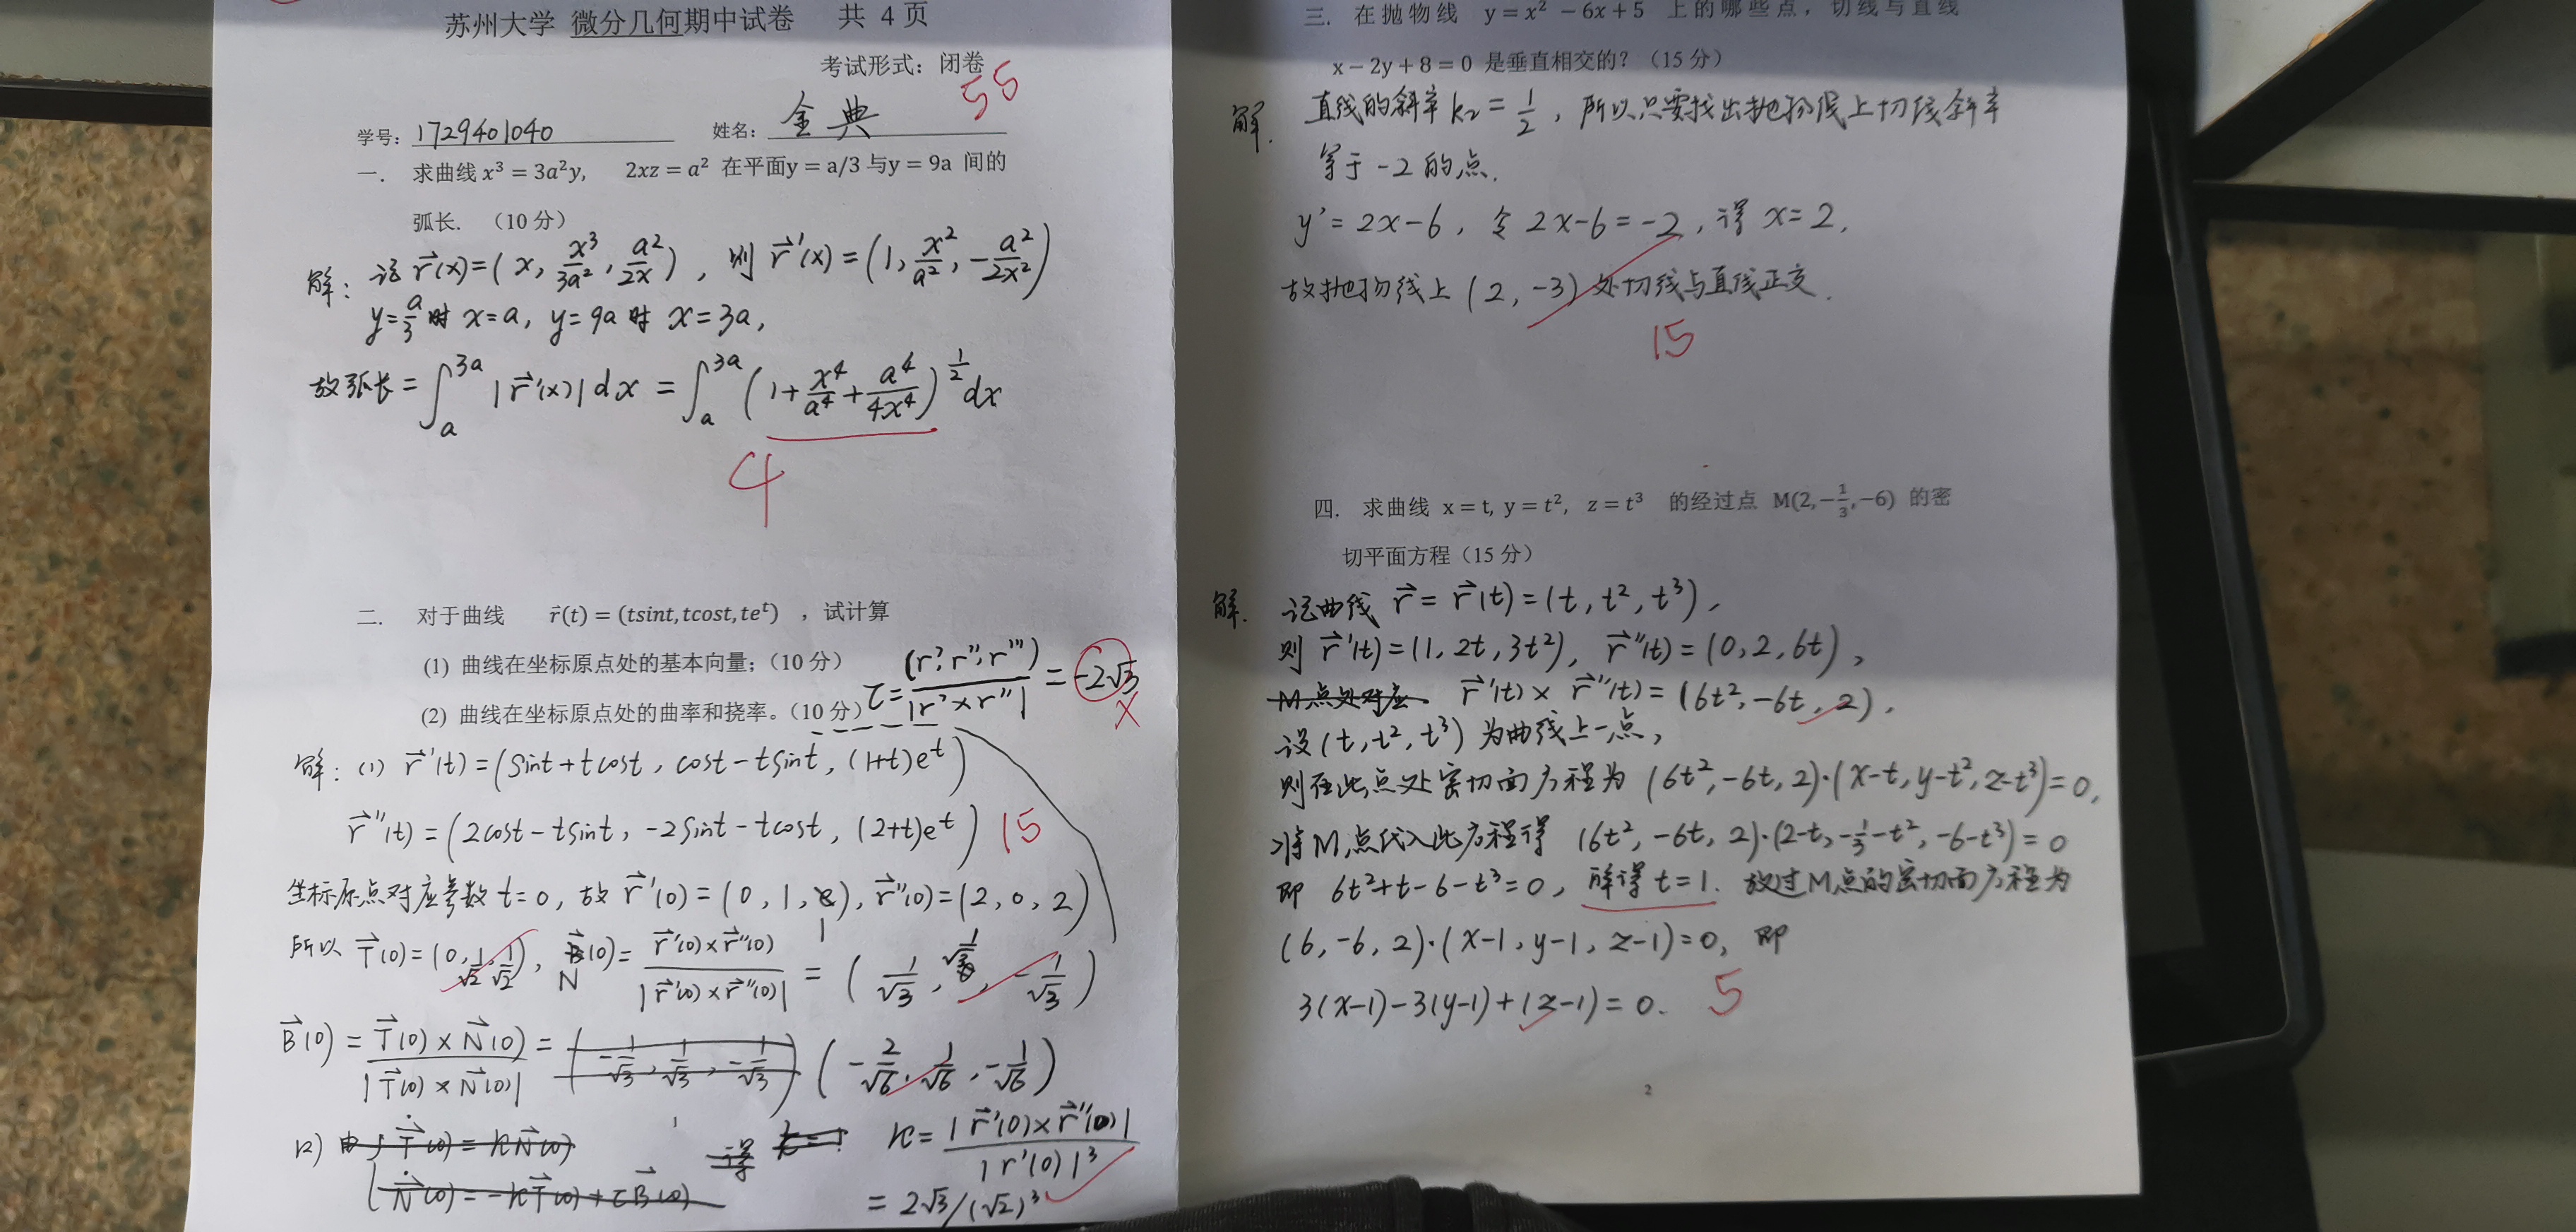 苏州大学 微分几何期中试卷 共 4 页
考试形式：闭卷
55
学号：1729401040 姓名：金典
一. 求曲线 x³ = 3a²y, 2xz = a² 在平面y = a/3 与y = 9a 间的
弧长. （10 分）
解：记 r⃗(x)=(x, x³/3a², a²/2x), 则 r⃗'(x)=(1, x²/a², -a²/2x²)
y=a/3 时 x=a, y=9a 时 x=3a,
故弧长 = ∫_a^{3a} |r⃗'(x)| dx = ∫_a^{3a} (1+x⁴/a⁴+a⁴/4x⁴)^{1/2} dx
4
二. 对于曲线 r⃗(t) = (tsint, tcost, te^t) ，试计算
(1) 曲线在坐标原点处的基本向量;（10 分）
(2) 曲线在坐标原点处的曲率和挠率。（10 分）
τ = (r', r'', r''')/|r'×r''| = -2√3
×
解：(1) r⃗'(t)=(sint+tcost, cost-tsint, (1+t)e^t)
r⃗''(t)=(2cost-tsint, -2sint-tcost, (2+t)e^t) 15
坐标原点对应参数 t=0, 故 r⃗'(0)=(0, 1, 1), r⃗''(0)=(2, 0, 2)
所以 T⃗(0)=(0, 1/√2, 1/√2), N⃗(0)= r⃗'(0)×r⃗''(0)/|r⃗'(0)×r⃗''(0)| = (1/√3, 1/√3, -1/√3)
B⃗(0) = T⃗(0)×N⃗(0)/|T⃗(0)×N⃗(0)| = (-1/√3, 1/√3, -1/√3) (-2/√6, 1/√6, -1/√6)
(2) 由 Ṫ⃗(0)=κN⃗(0) 得 κ = |r⃗'(0)×r⃗''(0)|/|r'(0)|³
Ṅ⃗(0)=-κT⃗(0)+τB⃗(0)
= 2√3/(√2)³
三. 在抛物线 y = x² − 6x + 5 上的哪些点，切线与直线
x − 2y + 8 = 0 是垂直相交的？（15 分）
解. 直线的斜率 k₂ = 1/2, 所以只要找出抛物线上切线斜率
等于 -2 的点.
y' = 2x-6, 令 2x-6=-2, 得 x=2,
故抛物线上 (2, -3) 处切线与直线正交.
15
四. 求曲线 x = t, y = t², z = t³ 的经过点 M(2,−1/3,−6) 的密
切平面方程（15 分）
解. 记曲线 r⃗ = r⃗(t)=(t, t², t³),
则 r⃗'(t)=(1, 2t, 3t²), r⃗''(t)=(0, 2, 6t),
M点处对应 r⃗'(t)×r⃗''(t)=(6t², -6t, 2).
设(t, t², t³) 为曲线上一点,
则在此点处密切面方程为 (6t², -6t, 2)·(x-t, y-t², z-t³)=0,
将M点代入此方程得 (6t², -6t, 2)·(2-t, -1/3-t², -6-t³)=0
即 6t²+t-6-t³=0, 解得 t=1. 故过M点的密切面方程为
(6, -6, 2)·(x-1, y-1, z-1)=0, 即
3(x-1)-3(y-1)+(z-1)=0. 5
2